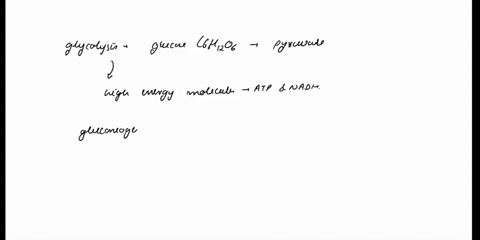 glycolysis - glucose C6H12O6 → pyruvate
high energy molecules → ATP & NADH.
gluconeoge